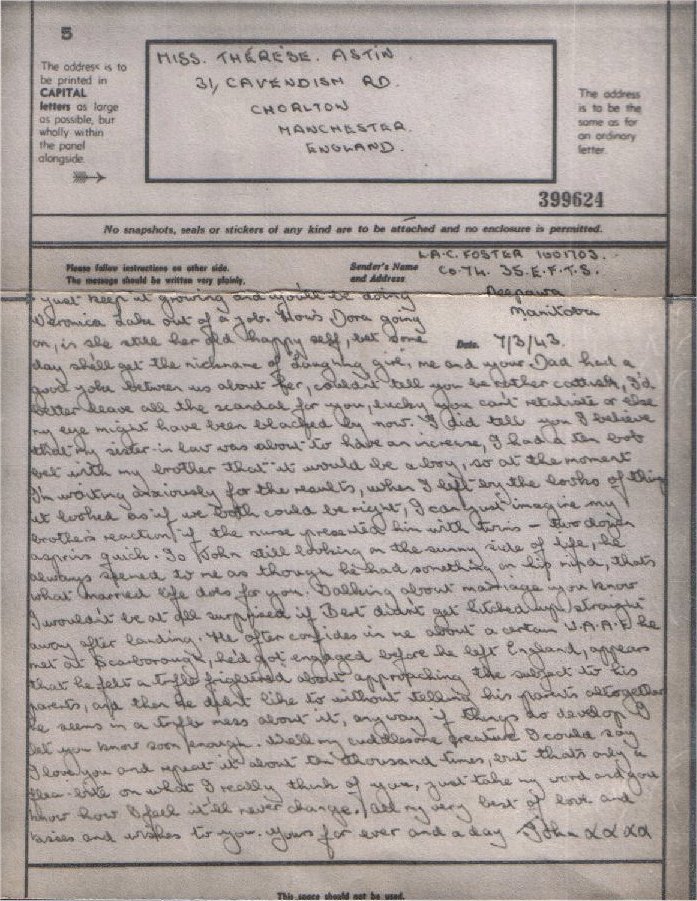 5
The address is to
be printed in
CAPITAL
letters as large
as possible, but
wholly within
the panel
alongside.
MISS. THÉRÈSE. ASTIN
31, CAVENDISH RD.
CHORLTON
MANCHESTER.
ENGLAND.
The address
is to be the
same as for
an ordinary
letter.
399624
No snapshots, seals or stickers of any kind are to be attached and no enclosure is permitted.
Please follow instructions on other side.
The message should be written very plainly.
Sender's Name
and Address
L.A.C. FOSTER 1001703.
Co. 74. 35. E.F.T.S.
Neepawa
Manitoba
Date 7/3/43.
just keep it growing and you'll be doing
Veronica Lake out of a job. How's Dora going
on, is she still her old happy self, bet some
day she'll get the nickname of laughing girl, me and your Dad had a
good joke between us about her, couldn't tell you be rather cattish, I'd
better leave all the scandal for you, lucky you can't retaliate or else
my eye might have been blacked by now. I did tell you I believe
that my sister in law was about to have an increase, I had a ten bob
bet with my brother that it would be a boy, so at the moment
I'm waiting anxiously for the results, when I left by the looks of things
it looked as if we both could be right, I can just imagine my
brother's reaction if the nurse presented him with twins - two dozen
aspirins quick. So John still looking on the sunny side of life, he
always seemed to me as though he had something on his mind, thats
what married life does for you. Talking about marriage you know
I wouldn't be at all surprised if Bert didn't get hitched up straight
away after landing. He often confides in me about a certain W.A.A.F he
met at Scarborough, he'd got engaged before he left England, appears
that he felt a trifle frightened about approaching the subject to his
parents, and then he didn't like to without telling his parents altogether
he seems in a trifle mess about it, anyway if things do develop I
let you know soon enough. Well my cuddlesome creature I could say
I love you and repeat it about ten thousand times, but that's only a
flea-bite on what I really think of you, just take my word and you
know how I feel it'll never change. All my very best of love and
kisses and wishes to you. yours for ever and a day John xxxx
This space should not be used.